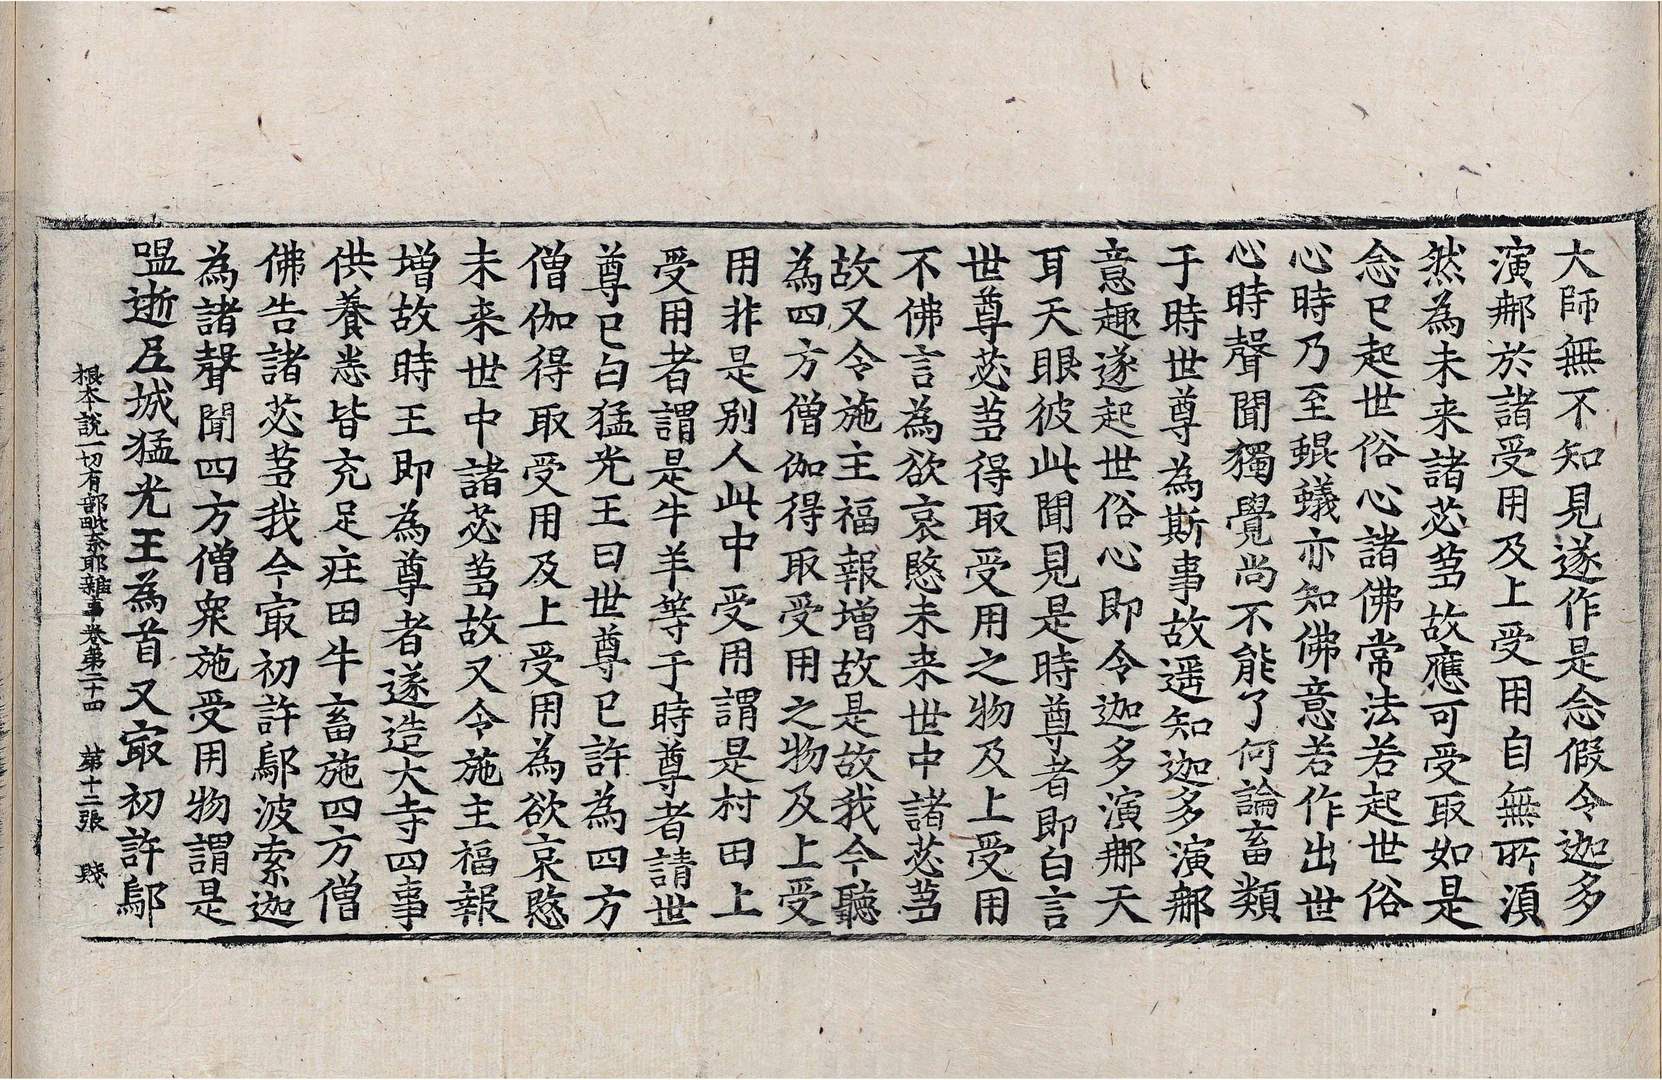 大師無不知見遂作是念假令迦多
演𨙻於諸受用及上受用自無所湏
然為未来諸苾蒭故應可受取如是
念已起世俗心諸佛常法若起世俗
心時乃至蜫蟻亦知佛意若作出世
心時聲聞獨覺尚不能了何論畜類
于時世尊為斯事故遥知迦多演𨙻
意趣遂起世俗心即令迦多演𨙻天
耳天眼彼此聞見是時尊者即白言
世尊苾蒭得取受用之物及上受用
不佛言為欲哀愍未来世中諸苾蒭
故又令施主福報增故是故我今聽
為四方僧伽得取受用之物及上受
用非是别人此中受用謂是村田上
受用者謂是牛羊等于時尊者請世
尊已白猛光王曰世尊已許為四方
僧伽得取受用及上受用為欲哀愍
未来世中諸苾蒭故又令施主福報
增故時王即為尊者遂造大寺四事
供養悉皆充足庄田牛畜施四方僧
佛告諸苾蒭我今㝡初許鄔波索迦
為諸聲聞四方僧衆施受用物謂是
嗢逝𡰱城猛光王為首又㝡初許鄔
根本說一切有部毗奈耶雜事卷第二十四 第十二張 賤